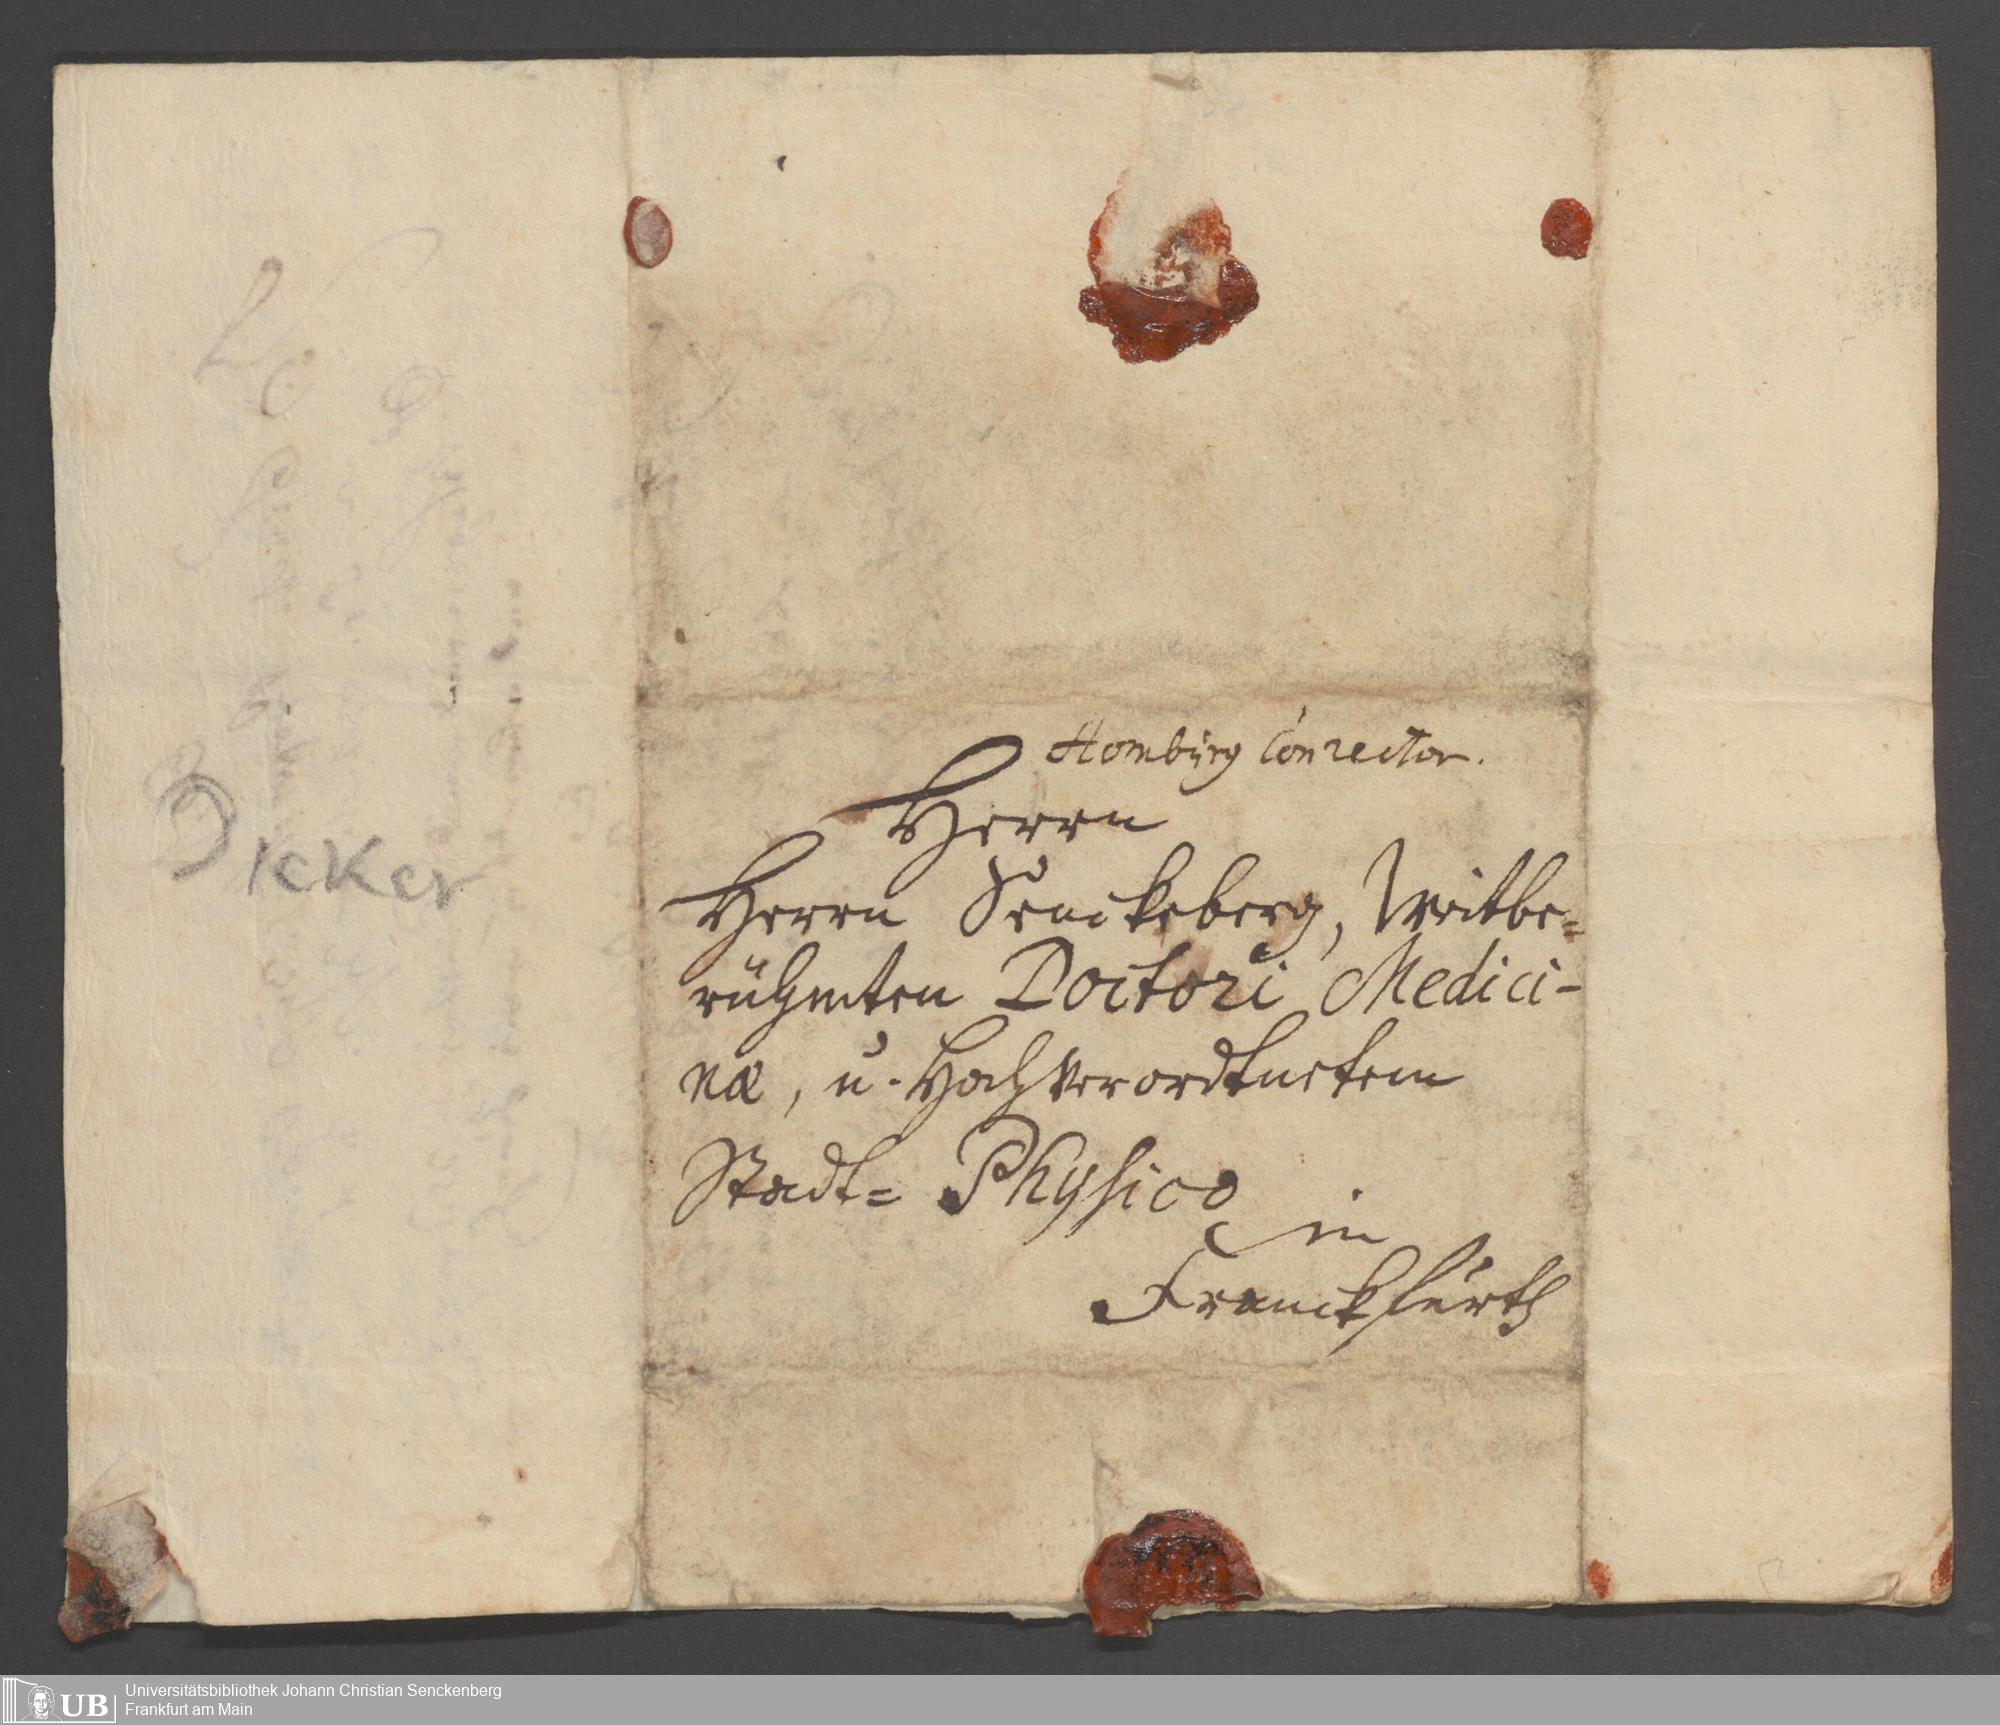 Homburg Conrector.
Herrn
Herrn Senckeberg, Weitbe=
rühmten Doctori Medici-
næ, u. Hochverordtnetem
Stadt= Physico
in
Franckfurth
Dicker
UB
Universitätsbibliothek Johann Christian Senckenberg
Frankfurt am Main